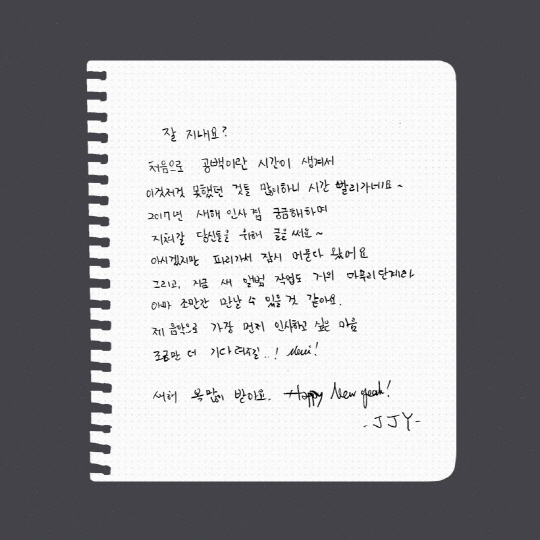 잘 지내요?
처음으로 공백이란 시간이 생겨서
이것저것 못했던 것들 많이하니 시간 빨리가네요~
2017년 새해 인사 겸 궁금해하며
지쳐갈 당신들을 위해 글을 써요~
아시겠지만 파리가서 잠시 머문다 왔어요
그리고, 지금 새 앨범 작업도 거의 마무리단계라
아마 조만간 만날 수 있을 것 같아요.
제 음악으로 가장 먼저 인사하고 싶은 마음
조금만 더 기다려주길..! Merci!
새해 복 많이 받아요. Happy New year!
-JJY-